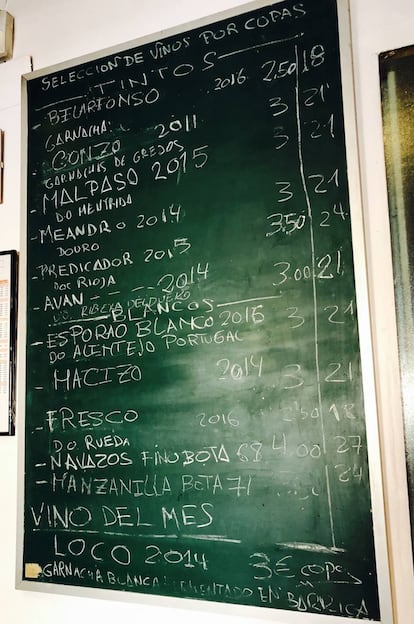 SELECCION DE VINOS POR COPAS
TINTOS
- BILARFONSO 2016 2,50 18
GARNACHA
- GONZO 2011 3 21
GARNACHAS DE GREDOS
- MALPASO 2015 3 21
DO MENTRIDA
- MEANDRO 2014 3 21
DOURO
- PREDICADOR 2015 3,50 24
DOC RIOJA
- AVAN 2014 3.00 21
D.O. RIBERA DEL DUERO
BLANCOS
- ESPORAO BLANCO 2016 3 21
DO ALENTEJO PORTUGAL
- MACIZO 2014 3 21
- FRESCO 2016 2,50 18
DO RUEDA
- NAVAZOS FINO BOTA 68 4.00 27
- MANZANILLA BOTA 71 24
VINO DEL MES
LOCO 2014 3€ copa
GARNACHA BLANCA FERMENTADO EN BARRICA